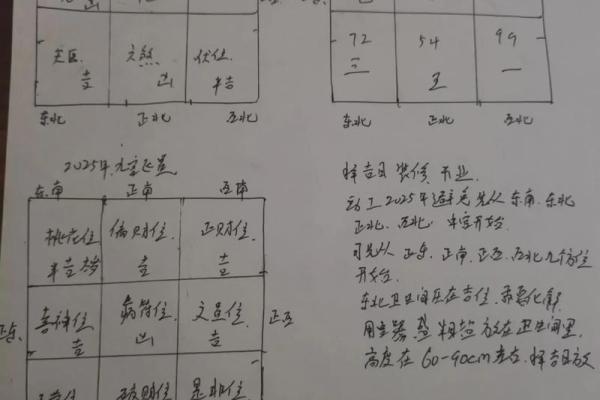 天医 六煞 伏位
吉 凶 半吉
东北 正北 西北
72 54 99
三 王 一
东北 正北 西北
2025年
东南 正南 西南
桃花位 偏财位 正财位
半吉 吉 吉
喜神位 病符位 文昌位
吉 凶 吉
正东 正西
破财位 是非位
择吉日 装修 开业
动工2025年避免先从东南、东北
正北、西北、中宫开始
可先从正东、正南、正西、西北几个方位
开始
东北卫生间压在吉位
用 器 粗盐放在卫生间里
高度在60-90cm左右、择吉日放